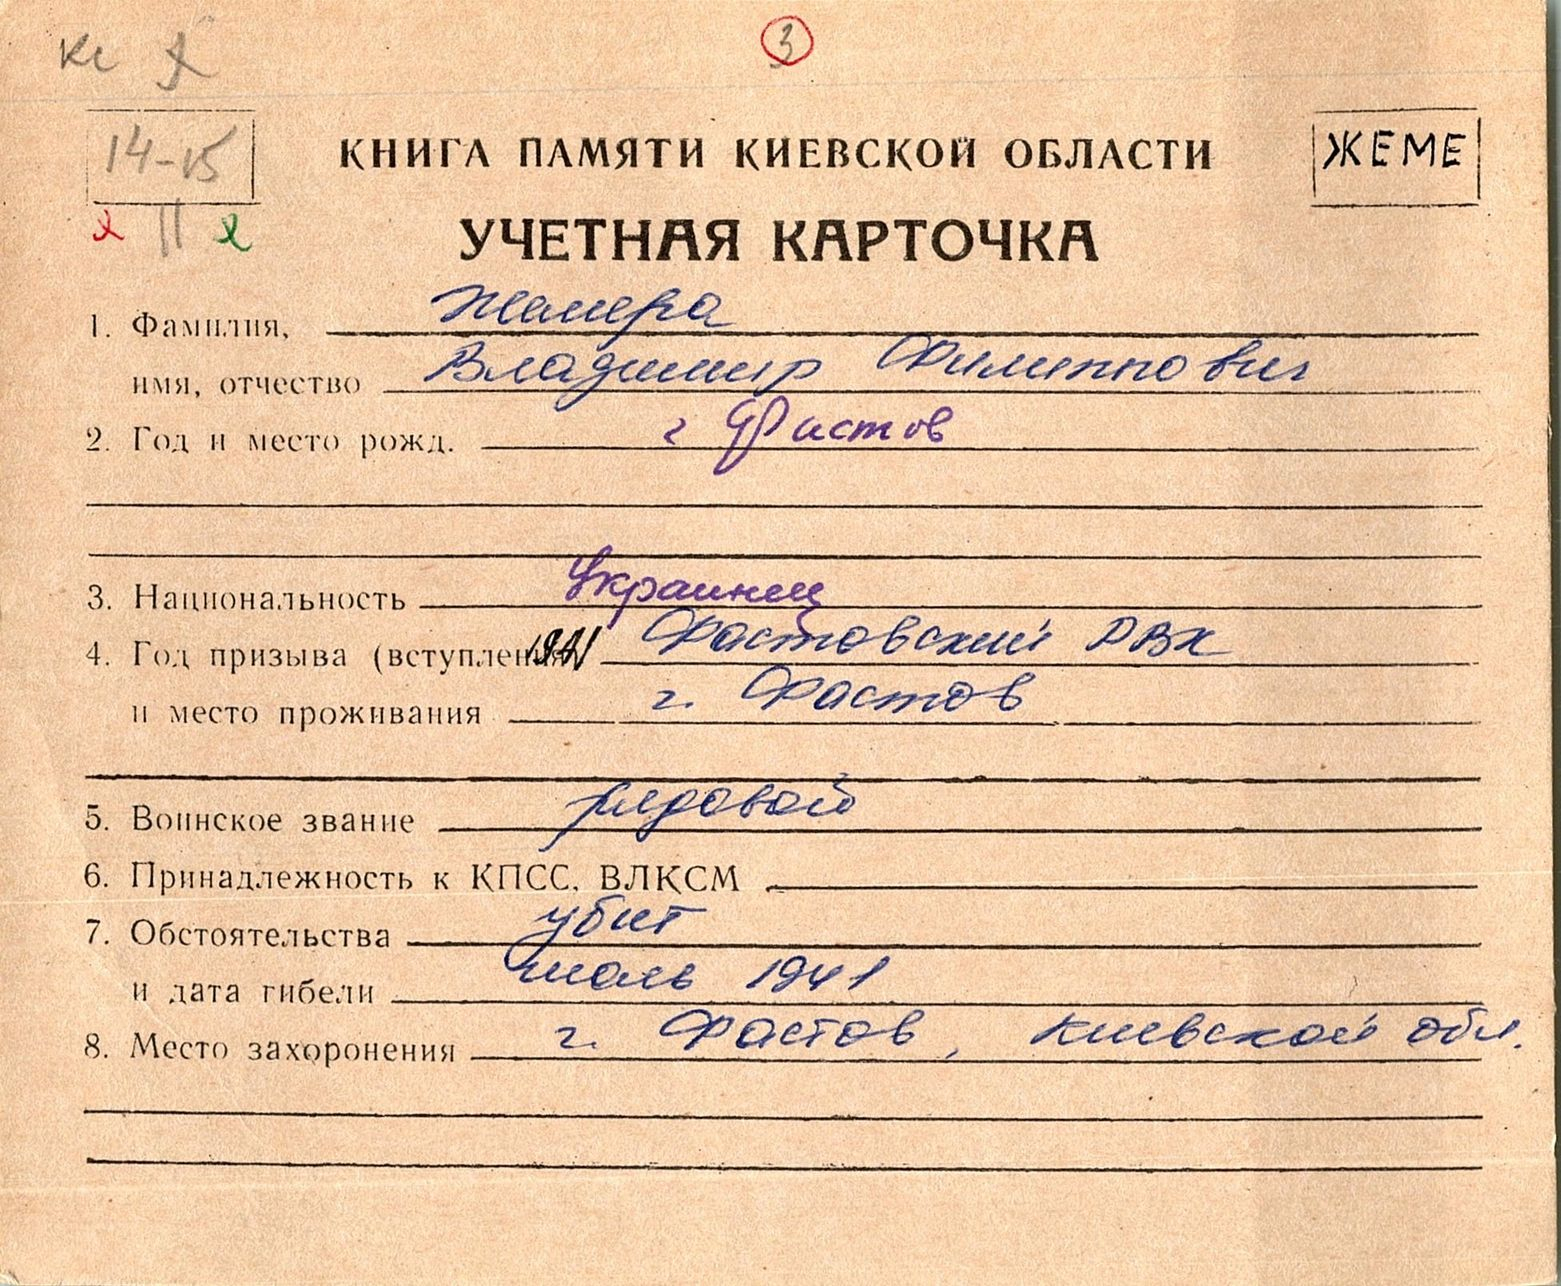 3
14-15
КНИГА ПАМЯТИ КИЕВСКОЙ ОБЛАСТИ
ЖЕМЕ
II
УЧЕТНАЯ КАРТОЧКА
1. Фамилия, Жемера
имя, отчество Владимир Филиппович
2. Год и место рожд. г Фастов
3. Национальность Украинец
4. Год призыва (вступления) 1941 Фастовский РВК
и место проживания г. Фастов
5. Воинское звание рядовой
6. Принадлежность к КПСС, ВЛКСМ
7. Обстоятельства убит
и дата гибели июль 1941
8. Место захоронения г. Фастов, Киевской обл.